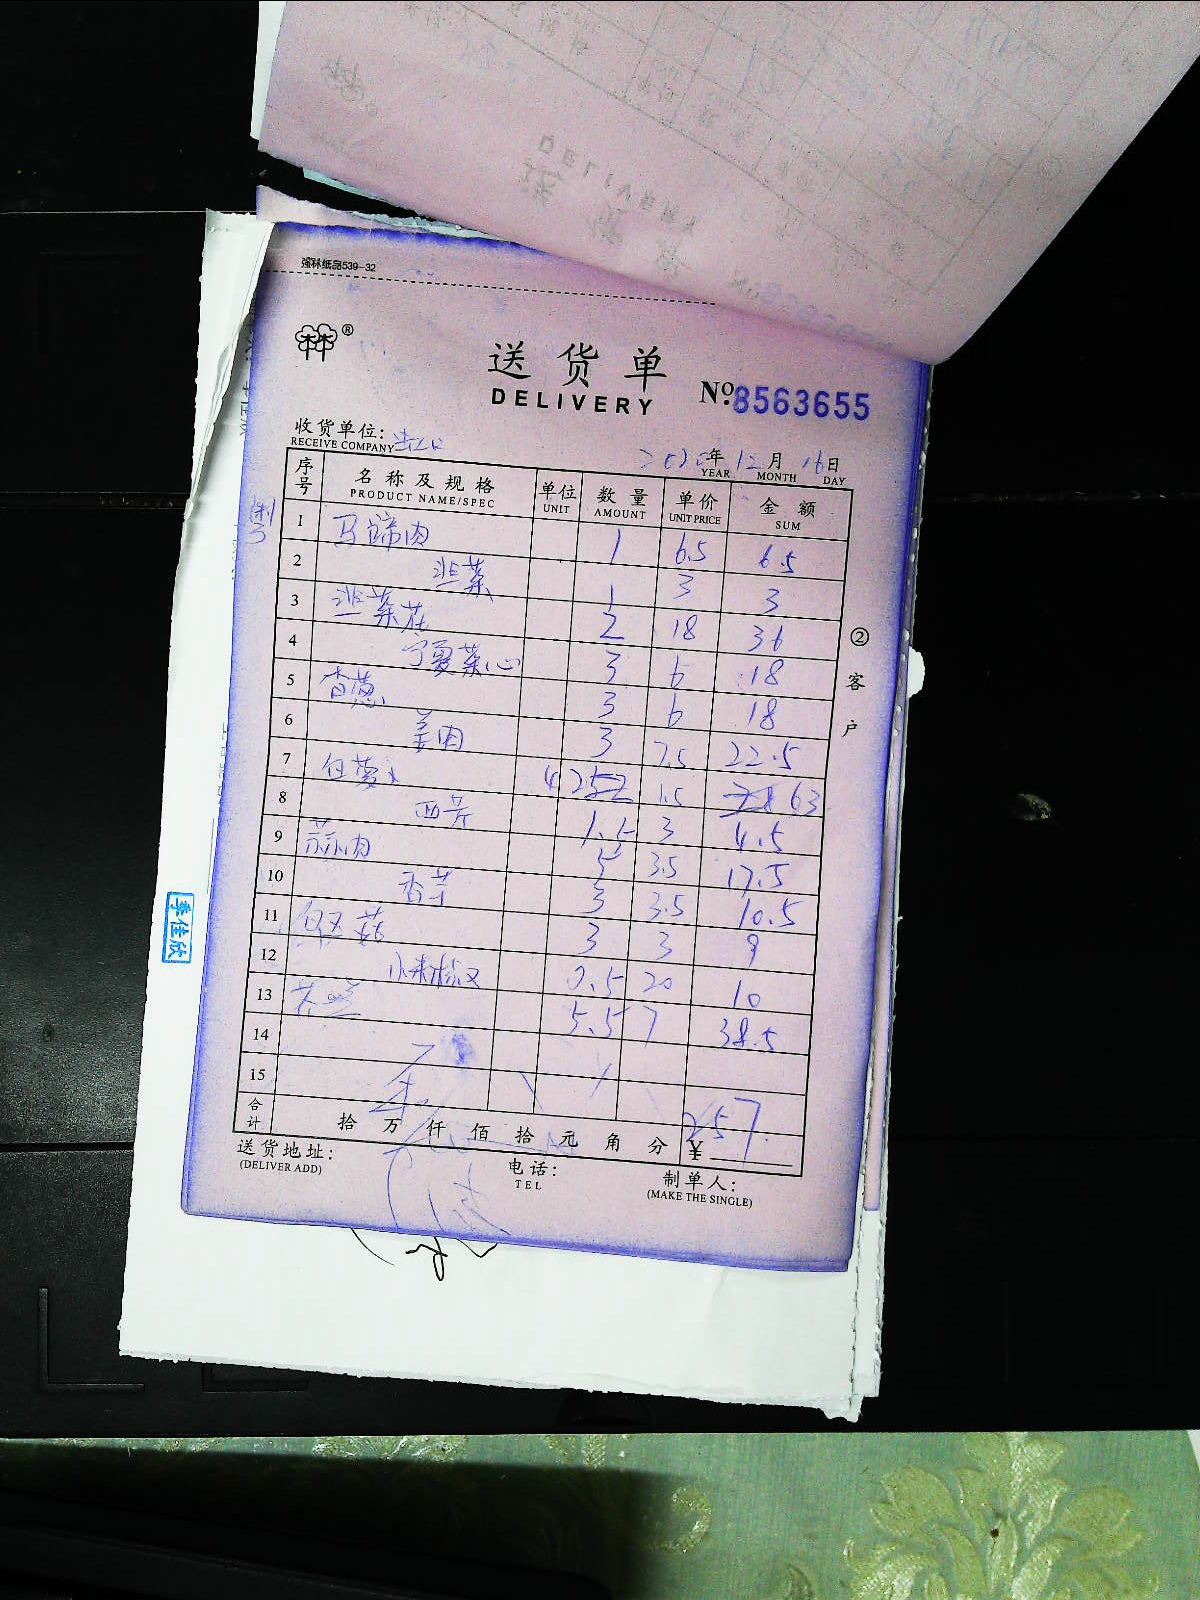 强林纸品539-32
®
送货单
DELIVERY
№:8563655
收货单位:
RECEIVE COMPANY
2020年12月16日
YEAR MONTH DAY
序号 名称及规格 单位 数量 单价 金额
PRODUCT NAME/SPEC UNIT AMOUNT UNIT PRICE SUM
1 马蹄肉 1 6.5 6.5
2 韭菜 1 3 3
3 韭菜花 2 18 36
4 宁夏菜心 3 6 18
5 香葱 3 6 18
6 姜肉 3 7.5 22.5
7 白萝卜 42 1.5 63
8 西芹 1.5 3 4.5
9 蒜肉 5 3.5 17.5
10 香芋 3 3.5 10.5
11 3 3 9
12 小米椒 0.5 20 10
13 5.5 7 38.5
14
15
合计 拾万仟佰拾元角分 ¥257
送货地址:
(DELIVER ADD)
电话:
TEL
制单人:
(MAKE THE SINGLE)
②客户
李佳欣